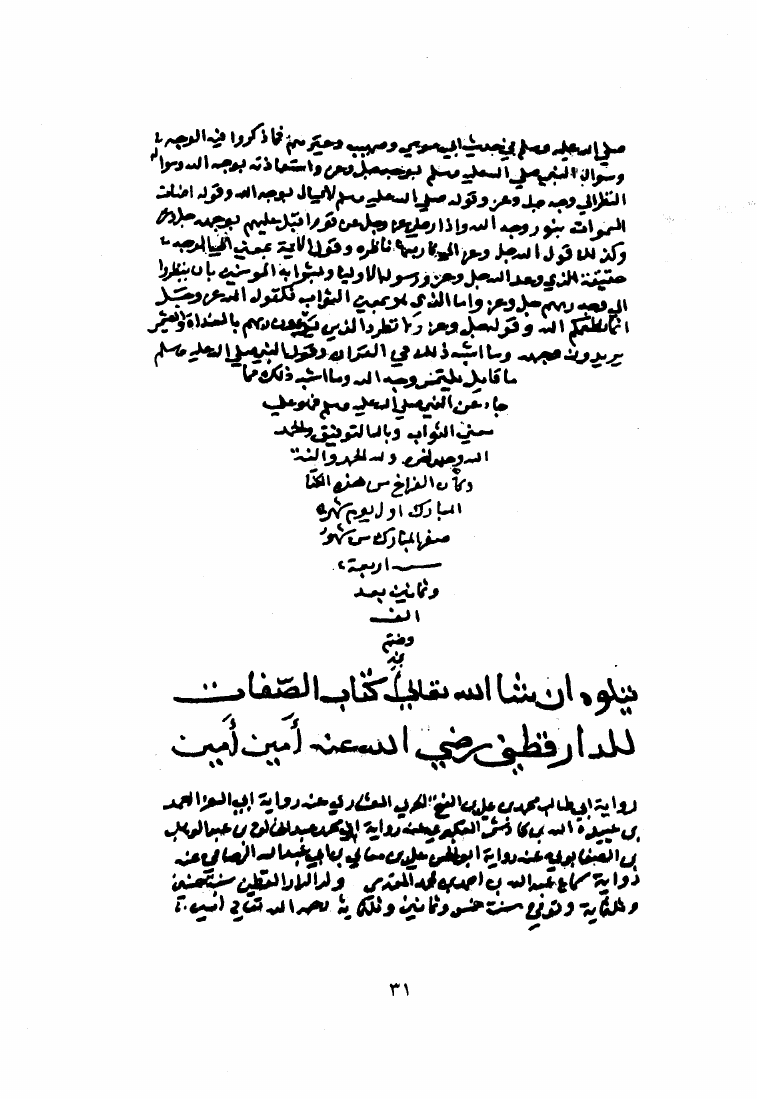 صلى الله عليه وسلم في حديث ابي موسى وصهيب وغيرهم مما ذكروا فيه الوجه
وسوال النبي صلى الله عليه وسلم بوجهه جل وعز واستعاذته بوجه الله وسواله
النظر الى وجهه جل وعز وقوله صلى الله عليه وسلم لا يسال بوجه الله وقوله اضات
السموات بنور وجه الله واذا رضي عز وجل عن قوم اقبل عليهم بوجهه جل وعز
وكذلك قول الله جل وعز الى ربها ناظرة وقول الاية بمعنى الوجه
حقيقة الذي وعد الله جل وعز ورسوله الاوليا وبشر به المومنين بان ينظروا
الى وجه ربهم جل وعز واما الذي هو بمعنى الثواب فكقول الله عز وجل
انما نطعمكم لوجه الله وقوله جل وعز ولا تطرد الذين يدعون ربهم بالغداة والعشي
يريدون وجهه وما اشبه ذلك في القران وقول النبي صلى الله عليه وسلم
ما قايل يلتمس وجه الله وما اشبه ذلك مما
جاء عن النبي صلى الله عليه وسلم فهو على
معنى الثواب وبالله التوفيق والحمد
لله وحده وله الحمد والمنة
وكان الفراغ من هذه الكتاب
المبارك اول يوم شهر
صفر المبارك من شهور
سنة اربعة
وثمانين بعد
الف
وختم
يتلوه ان شا الله تعالى كتاب الصفات
للدارقطني رضي الله عنه أمين أمين
رواية ابي طالب محمد بن علي بن الفتح الحربي العشاري عنه رواية ابي العز احمد
بن عبيد الله بن كادش العكبري عنه رواية ابي محمد عبد الخالق بن عبد الوهاب
بن الصابوني عنه رواية ابو الحسن علي بن معالي بن ابي عبد الله الرصافي عنه
رواية سماع عبد الله بن احمد بن محمد المقدسي ولد الدارقطني سنة خمس
وثلثماية وتوفي سنة خمس وثمانين وثلثماية رحمه الله تعالى أمين
٣١